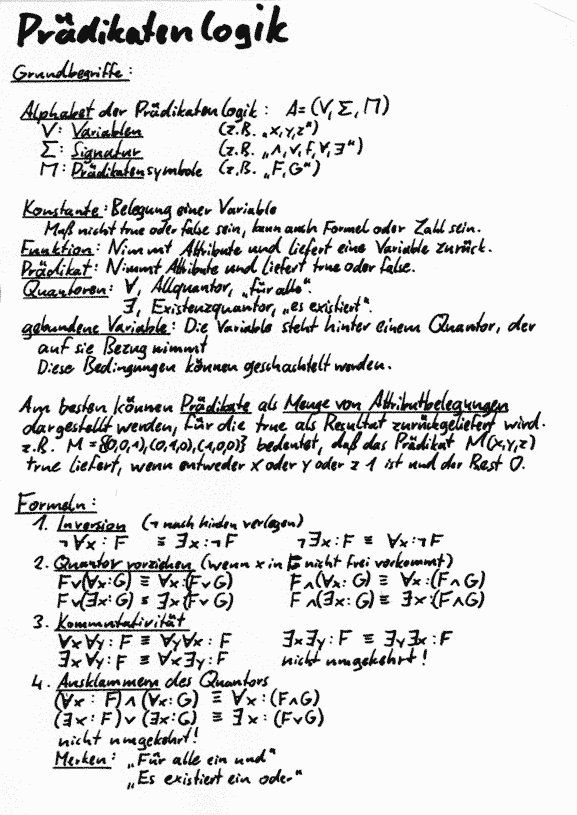 Prädikatenlogik
Grundbegriffe:
Alphabet der Prädikatenlogik: A=(V, Σ, Π)
V: Variablen (z.B. „x,y,z“)
Σ: Signatur (z.B. „∧,∨,f,∀,∃“)
Π: Prädikatensymbole (z.B. „F,G“)
Konstante: Belegung einer Variable
Muß nicht true oder false sein, kann auch Formel oder Zahl sein.
Funktion: Nimmt Attribute und liefert eine Variable zurück.
Prädikat: Nimmt Attribute und liefert true oder false.
Quantoren: ∀, Allquantor, „für alle“.
∃, Existenzquantor, „es existiert“.
gebundene Variable: Die Variable steht hinter einem Quantor, der
auf sie Bezug nimmt
Diese Bedingungen können geschachtelt werden.
Am besten können Prädikate als Menge von Attributbelegungen
dargestellt werden, für die true als Resultat zurückgeliefert wird.
z.B. M={(0,0,1),(0,1,0),(1,0,0)} bedeutet, daß das Prädikat M(x,y,z)
true liefert, wenn entweder x oder y oder z 1 ist und der Rest 0.
Formeln:
1. Inversion (¬ nach hinten verlagen)
¬∀x: F ≡ ∃x: ¬F ¬∃x: F ≡ ∀x: ¬F
2. Quantor vorziehen (wenn x in F nicht frei vorkommt)
F∨(∀x: G) ≡ ∀x: (F∨G) F∧(∀x: G) ≡ ∀x: (F∧G)
F∨(∃x: G) ≡ ∃x: (F∨G) F∧(∃x: G) ≡ ∃x: (F∧G)
3. Kommutativität
∀x∀y: F ≡ ∀y∀x: F ∃x∃y: F ≡ ∃y∃x: F
∃x∀y: F ≡ ∀x∃y: F nicht umgekehrt!
4. Ausklammern des Quantors
(∀x: F)∧(∀x: G) ≡ ∀x: (F∧G)
(∃x: F)∨(∃x: G) ≡ ∃x: (F∨G)
nicht umgekehrt!
Merken: „Für alle ein und“
„Es existiert ein oder“